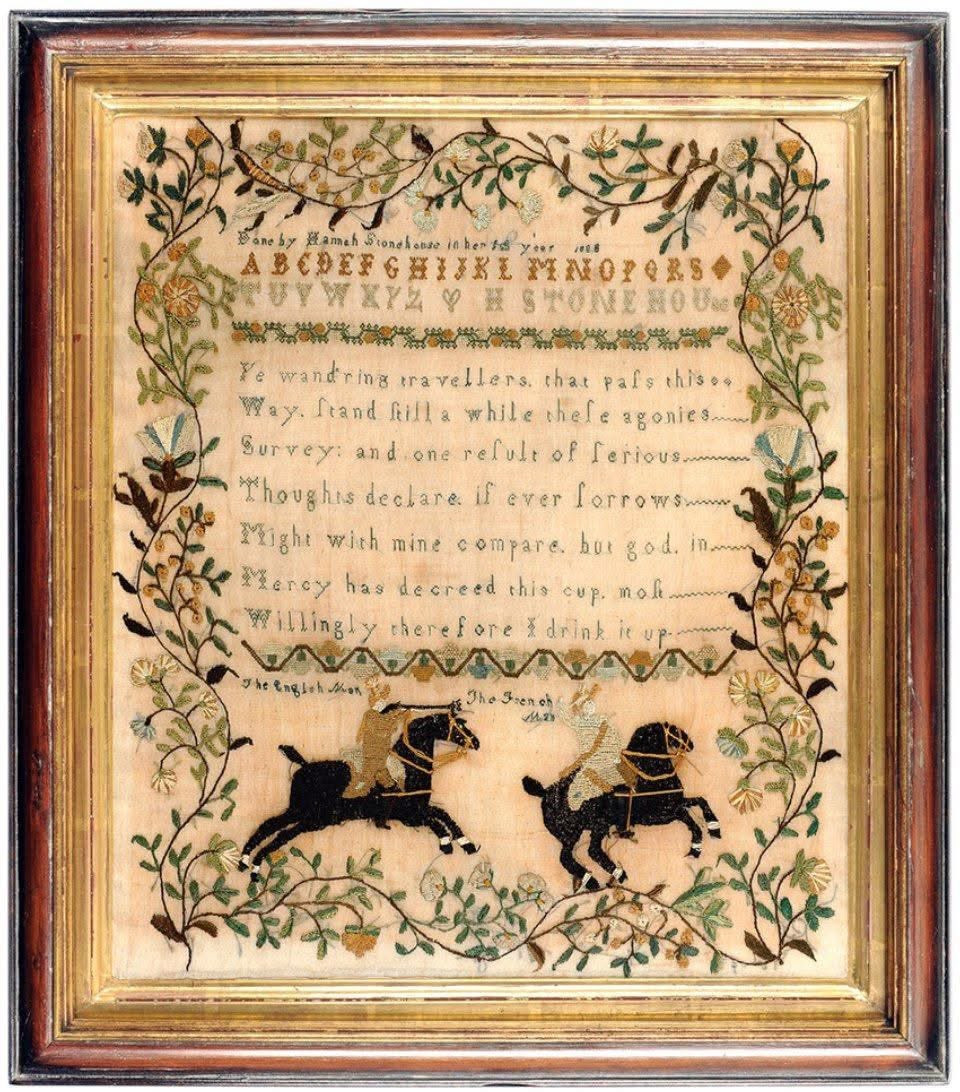 Done by Hannah Stonehouse in her year
A B C D E F G H I J K L M N O P Q R S
T U V W X Y Z H STONEHOUSE
Ye wand'ring travellers, that paſs this
Way, ſtand ſtill a while theſe agonies
Survey: and one reſult of ſerious
Thoughts declare, if ever ſorrows
Might with mine compare, but god, in
Mercy has decreed this cup, moſt
Willingly therefore I drink it up
The English Man
The French
Man